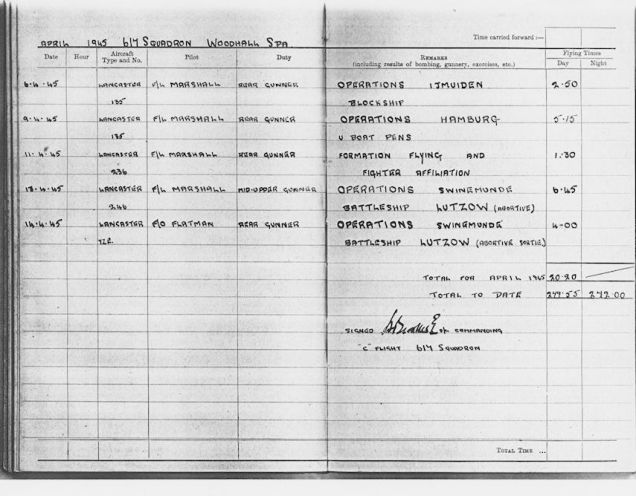 Time carried forward :—
APRIL 1945 617 SQUADRON WOODHALL SPA.
Date Hour Aircraft Type and No. Pilot Duty REMARKS (including results of bombing, gunnery, exercises, etc.) Flying Times Day Night
6·4·45 LANCASTER F/L MARSHALL REAR GUNNER OPERATIONS IJMUIDEN 2·50
BLOCKSHIP
9·4·45 LANCASTER F/L MARSHALL REAR GUNNER OPERATIONS HAMBURG 5·15
U BOAT PENS
11·4·45 LANCASTER F/L MARSHALL REAR GUNNER FORMATION FLYING AND 1·30
236 FIGHTER AFFILIATION
13·4·45 LANCASTER F/L MARSHALL MID-UPPER GUNNER OPERATIONS SWINEMUNDE 6·45
246 BATTLESHIP LUTZOW (ABORTIVE)
14·4·45 LANCASTER F/O FLATMAN REAR GUNNER OPERATIONS SWINEMUNDE 4·00
BATTLESHIP LUTZOW (ABORTIVE SORTIE)
TOTAL FOR APRIL 1945 20·20
TOTAL TO DATE 277·55 272·00
SIGNED COMMANDING
"C" FLIGHT 617 SQUADRON
TOTAL TIME ...